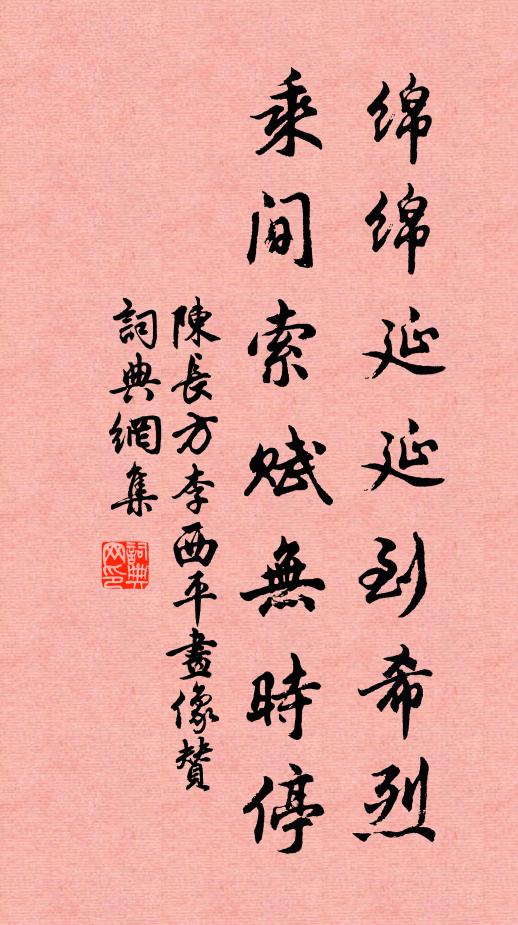 绵绵延延到希烈
乘间索赋無時停
陳長方李西平畫像贊
詞典網集
詞典
网印